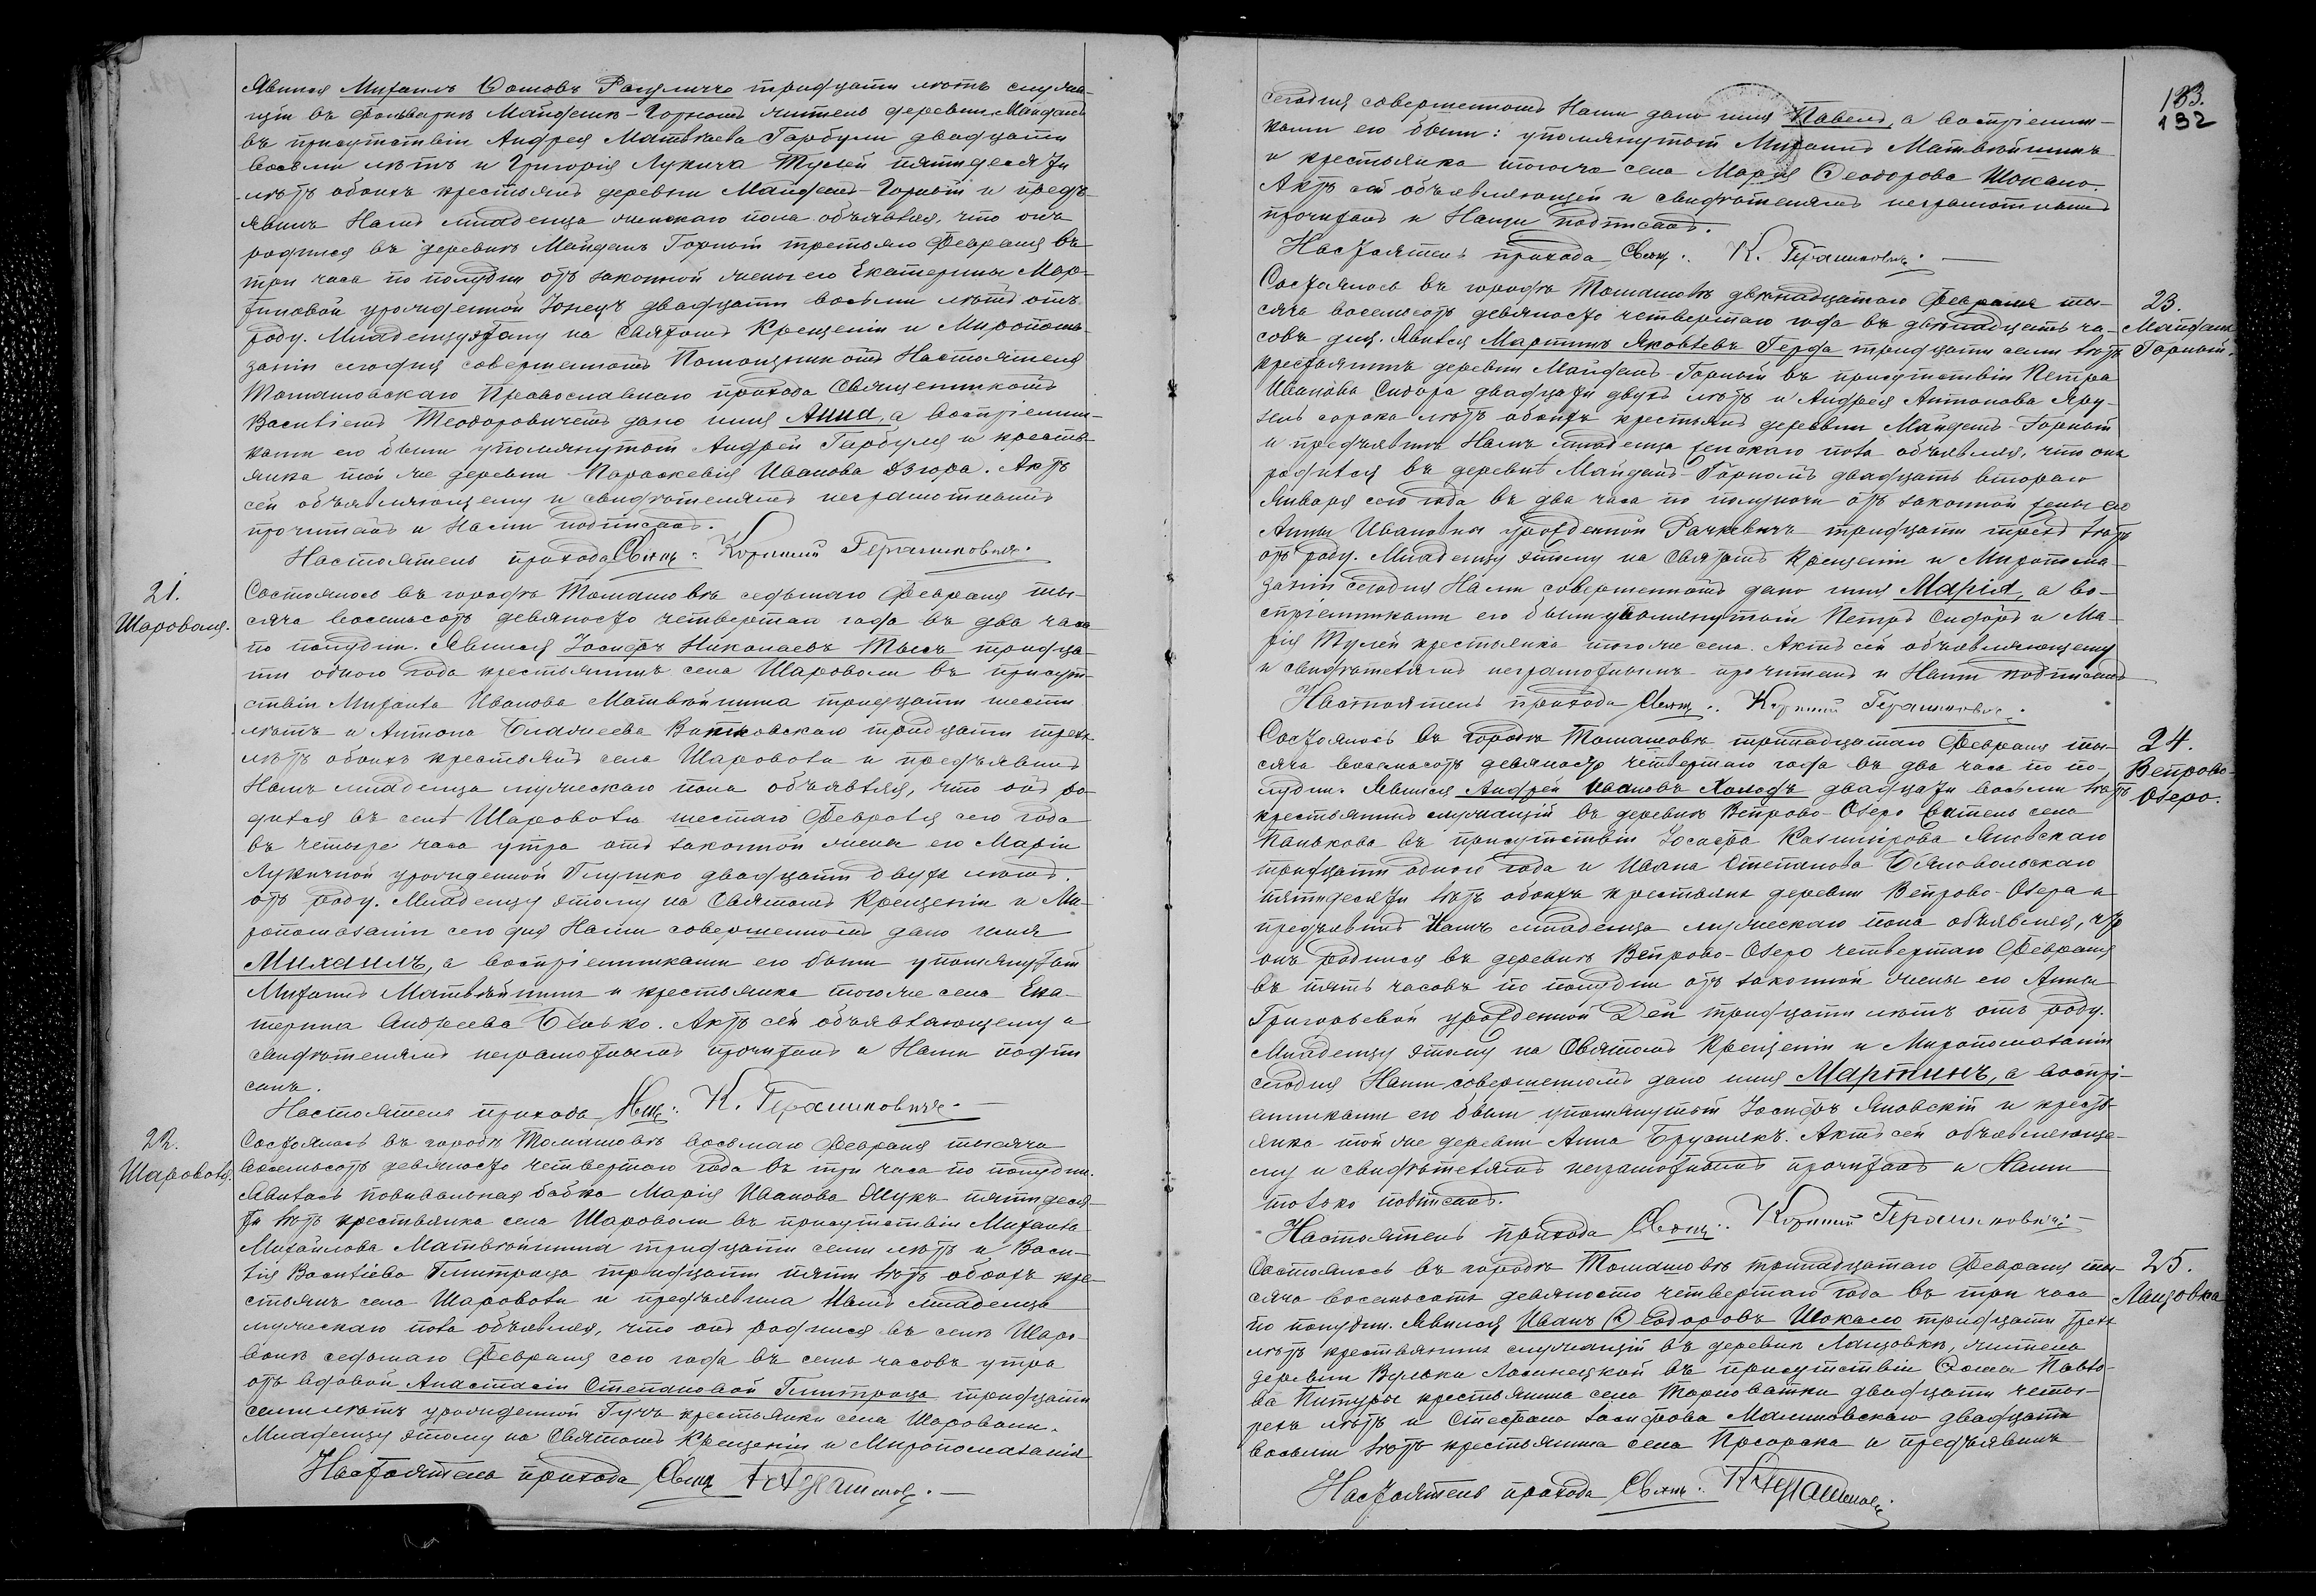 Явился Михаилъ Ѳомовъ Рагуличъ тридцати лѣтъ служа-
щій въ фольваркѣ Майданъ-Горномъ житель деревни Майданъ
въ присутствіи Андрея Матвѣева Гарбули двадцати
восьми лѣтъ и Григорія Лукича Тулей пятидесяти
лѣтъ обоихъ крестьянъ деревни Майданъ-Горный и предъ-
явилъ Намъ младенца женскаго пола объявляя, что онъ
родился въ деревнѣ Майданъ Горный третьяго Февраля въ
три часа по полудни отъ законной жены его Екатерины Мар-
тиновой урожденной Юнецъ двадцати восьми лѣтъ отъ
роду. Младенцу этому на Святомъ Крещеніи и Миропома-
заніи сегодня совершенномъ Помощникомъ Настоятеля
Томашовскаго Православнаго прихода Священникомъ
Василіемъ Теодоровичемъ дано имя Анна, а воспріемни-
ками его были упомянутый Андрей Гарбуля и кресть-
янка той же деревни Параскевія Иванова Дзюра. Актъ
сей объявляющему и свидѣтелямъ неграмотнымъ
прочитанъ и Нами подписанъ.
Настоятель прихода Свящ: Корнилій Герашковичъ.
21.
Шароволя.
Состоялось въ городѣ Томашовѣ седьмаго Февраля ты-
сяча восемьсотъ девяносто четвертаго года въ два часа
по полудни. Явился Іосифъ Николаевъ Тысъ тридца-
ти одного года крестьянинъ села Шароволи въ присут-
ствіи Михаила Иванова Матвѣйшина тридцати шести
лѣтъ и Антона Витковскаго тридцати трехъ
лѣтъ обоихъ крестьянъ села Шароволи и предъявилъ
Намъ младенца мужескаго пола объявляя, что онъ ро-
дился въ селѣ Шароволи шестаго Февраля сего года
въ четыре часа утра отъ законной жены его Маріи
Лукичной урожденной Глушко двадцати двухъ лѣтъ
отъ роду. Младенцу этому на Святомъ Крещеніи и Ми-
ропомазаніи сего дня Нами совершенномъ дано имя
Михаилъ, а воспріемниками его были упомянутый
Михаилъ Матвѣйшинъ и крестьянка того же села Ека-
терина Андреева Бѣлько. Актъ сей объявляющему и
свидѣтелямъ неграмотнымъ прочитанъ и Нами подпи
санъ.
Настоятель прихода Свящ: К. Герашковичъ.
22.
Шароволя.
Состоялось въ городѣ Томашовѣ восьмаго Февраля тысяча
восемьсотъ девяносто четвертаго года въ три часа по полудни.
Явилась повивальная бабка Марія Иванова Жукъ пятидеся-
ти лѣтъ крестьянка села Шароволи въ присутствіи Михаила
Михайлова Матвѣйшина тридцати семи лѣтъ и Васи-
лія Василіева Гмитраца тридцати пяти лѣтъ обоихъ кре-
стьянъ села Шароволи и предъявила Намъ младенца
мужескаго пола объявляя, что онъ родился въ селѣ Шаро-
волѣ седьмаго Февраля сего года въ семь часовъ утра
отъ вдовой Анастасіи Степановой Гмитраца тридцати
семи лѣтъ урожденной Гучъ крестьянки села Шароволи.
Младенцу этому на Святомъ Крещеніи и Миропомазаніи
Настоятель прихода Свящ К Герашковичъ.
183.
132
сегодня совершенномъ Нами дано имя Павелъ, а воспріемни-
ками его были: упомянутый Михаилъ Матвѣйшинъ
и крестьянка того же села Марія Ѳеодорова Шокало.
Актъ сей объявляющей и свидѣтелямъ неграмотнымъ
прочитанъ и Нами подписанъ.
Настоятель прихода Свящ. К. Герашковичъ.
23.
Майданъ
Горный.
Состоялось въ городѣ Томашовѣ двѣнадцатаго Февраля ты-
сяча восемьсотъ девяносто четвертаго года въ двѣнадцать ча-
совъ дня. Явился Мартинъ Яковлевъ Герда тридцати семи лѣтъ
крестьянинъ деревни Майданъ-Горный въ присутствіи Петра
Иванова Сидора двадцати двухъ лѣтъ и Андрея Антонова Яру-
сорока лѣтъ обоихъ крестьянъ деревни Майданъ-Горный
и предъявилъ Намъ младенца женскаго пола объявляя, что онъ
родился въ деревнѣ Майданъ-Горномъ двадцать втораго
Января сего года въ два часа по полуночи отъ законной жены его
Анны Ивановны урожденной Рачкевичъ тридцати трехъ лѣтъ
отъ роду. Младенцу этому на Святомъ Крещеніи и Миропома-
заніи сегодня Нами совершенномъ дано имя Марія, а во-
спріемниками его были упомянутый Петръ Сидоръ и Ма-
рія Тулей крестьянка того же села. Актъ сей объявляющему
и свидѣтелямъ неграмотнымъ прочитанъ и Нами подписанъ
Настоятель прихода Свящ.. Корнилій Герашковичъ.
24.
Вепрово-
Озеро.
Состоялось въ городѣ Томашовѣ тринадцатаго Февраля ты-
сяча восемьсотъ девяносто четвертаго года въ два часа по по-
лудни. Явился Андрей Ивановъ Холодъ двадцати восьми лѣтъ
крестьянинъ служащій въ деревнѣ Вепрово-Озеро житель села
Панькова въ присутствіи Іосифа Казимірова Яновскаго
тридцати одного года и Ивана Степанова Бѣловольскаго
пятидесяти лѣтъ обоихъ крестьянъ деревни Вепрово-Озера и
предъявилъ Намъ младенца мужескаго пола объявляя, что
онъ родился въ деревнѣ Вепрово-Озеро четвертаго Февраля
въ пять часовъ по полудни отъ законной жены его Анны
Григорьевой урожденной Дей тридцати лѣтъ отъ роду.
Младенцу этому на Святомъ Крещеніи и Миропомазаніи
сегодня Нами совершенномъ дано имя Мартинъ, а воспрі-
емниками его были упомянутый Іосифъ Яновскій и кресть-
янка той же деревни Анна Бруснякъ. Актъ сей объявляюще-
му и свидѣтелямъ неграмотнымъ прочитанъ и Нами
только подписанъ.
Настоятель прихода Свящ.. Корнилій Герашковичъ.
25.
Лащовка
Состоялось въ городѣ Томашовѣ тринадцатаго Февраля ты-
сяча восемьсотъ девяносто четвертаго года въ три часа
по полудни. Явился Иванъ Ѳеодоровъ Шокало тридцати трехъ
лѣтъ крестьянинъ служащій въ деревнѣ Лащовкѣ, житель
деревни Вулька Лосинецкой въ присутствіи Ѳомы Павло-
ва Питуры крестьянина села Тарноватки двадцати четы-
рехъ лѣтъ и Стефана Іосифова Малиновскаго двадцати
восьми лѣтъ крестьянина села Пшеорска и предъявилъ
Настоятель прихода Свящ. К Герашковичъ.